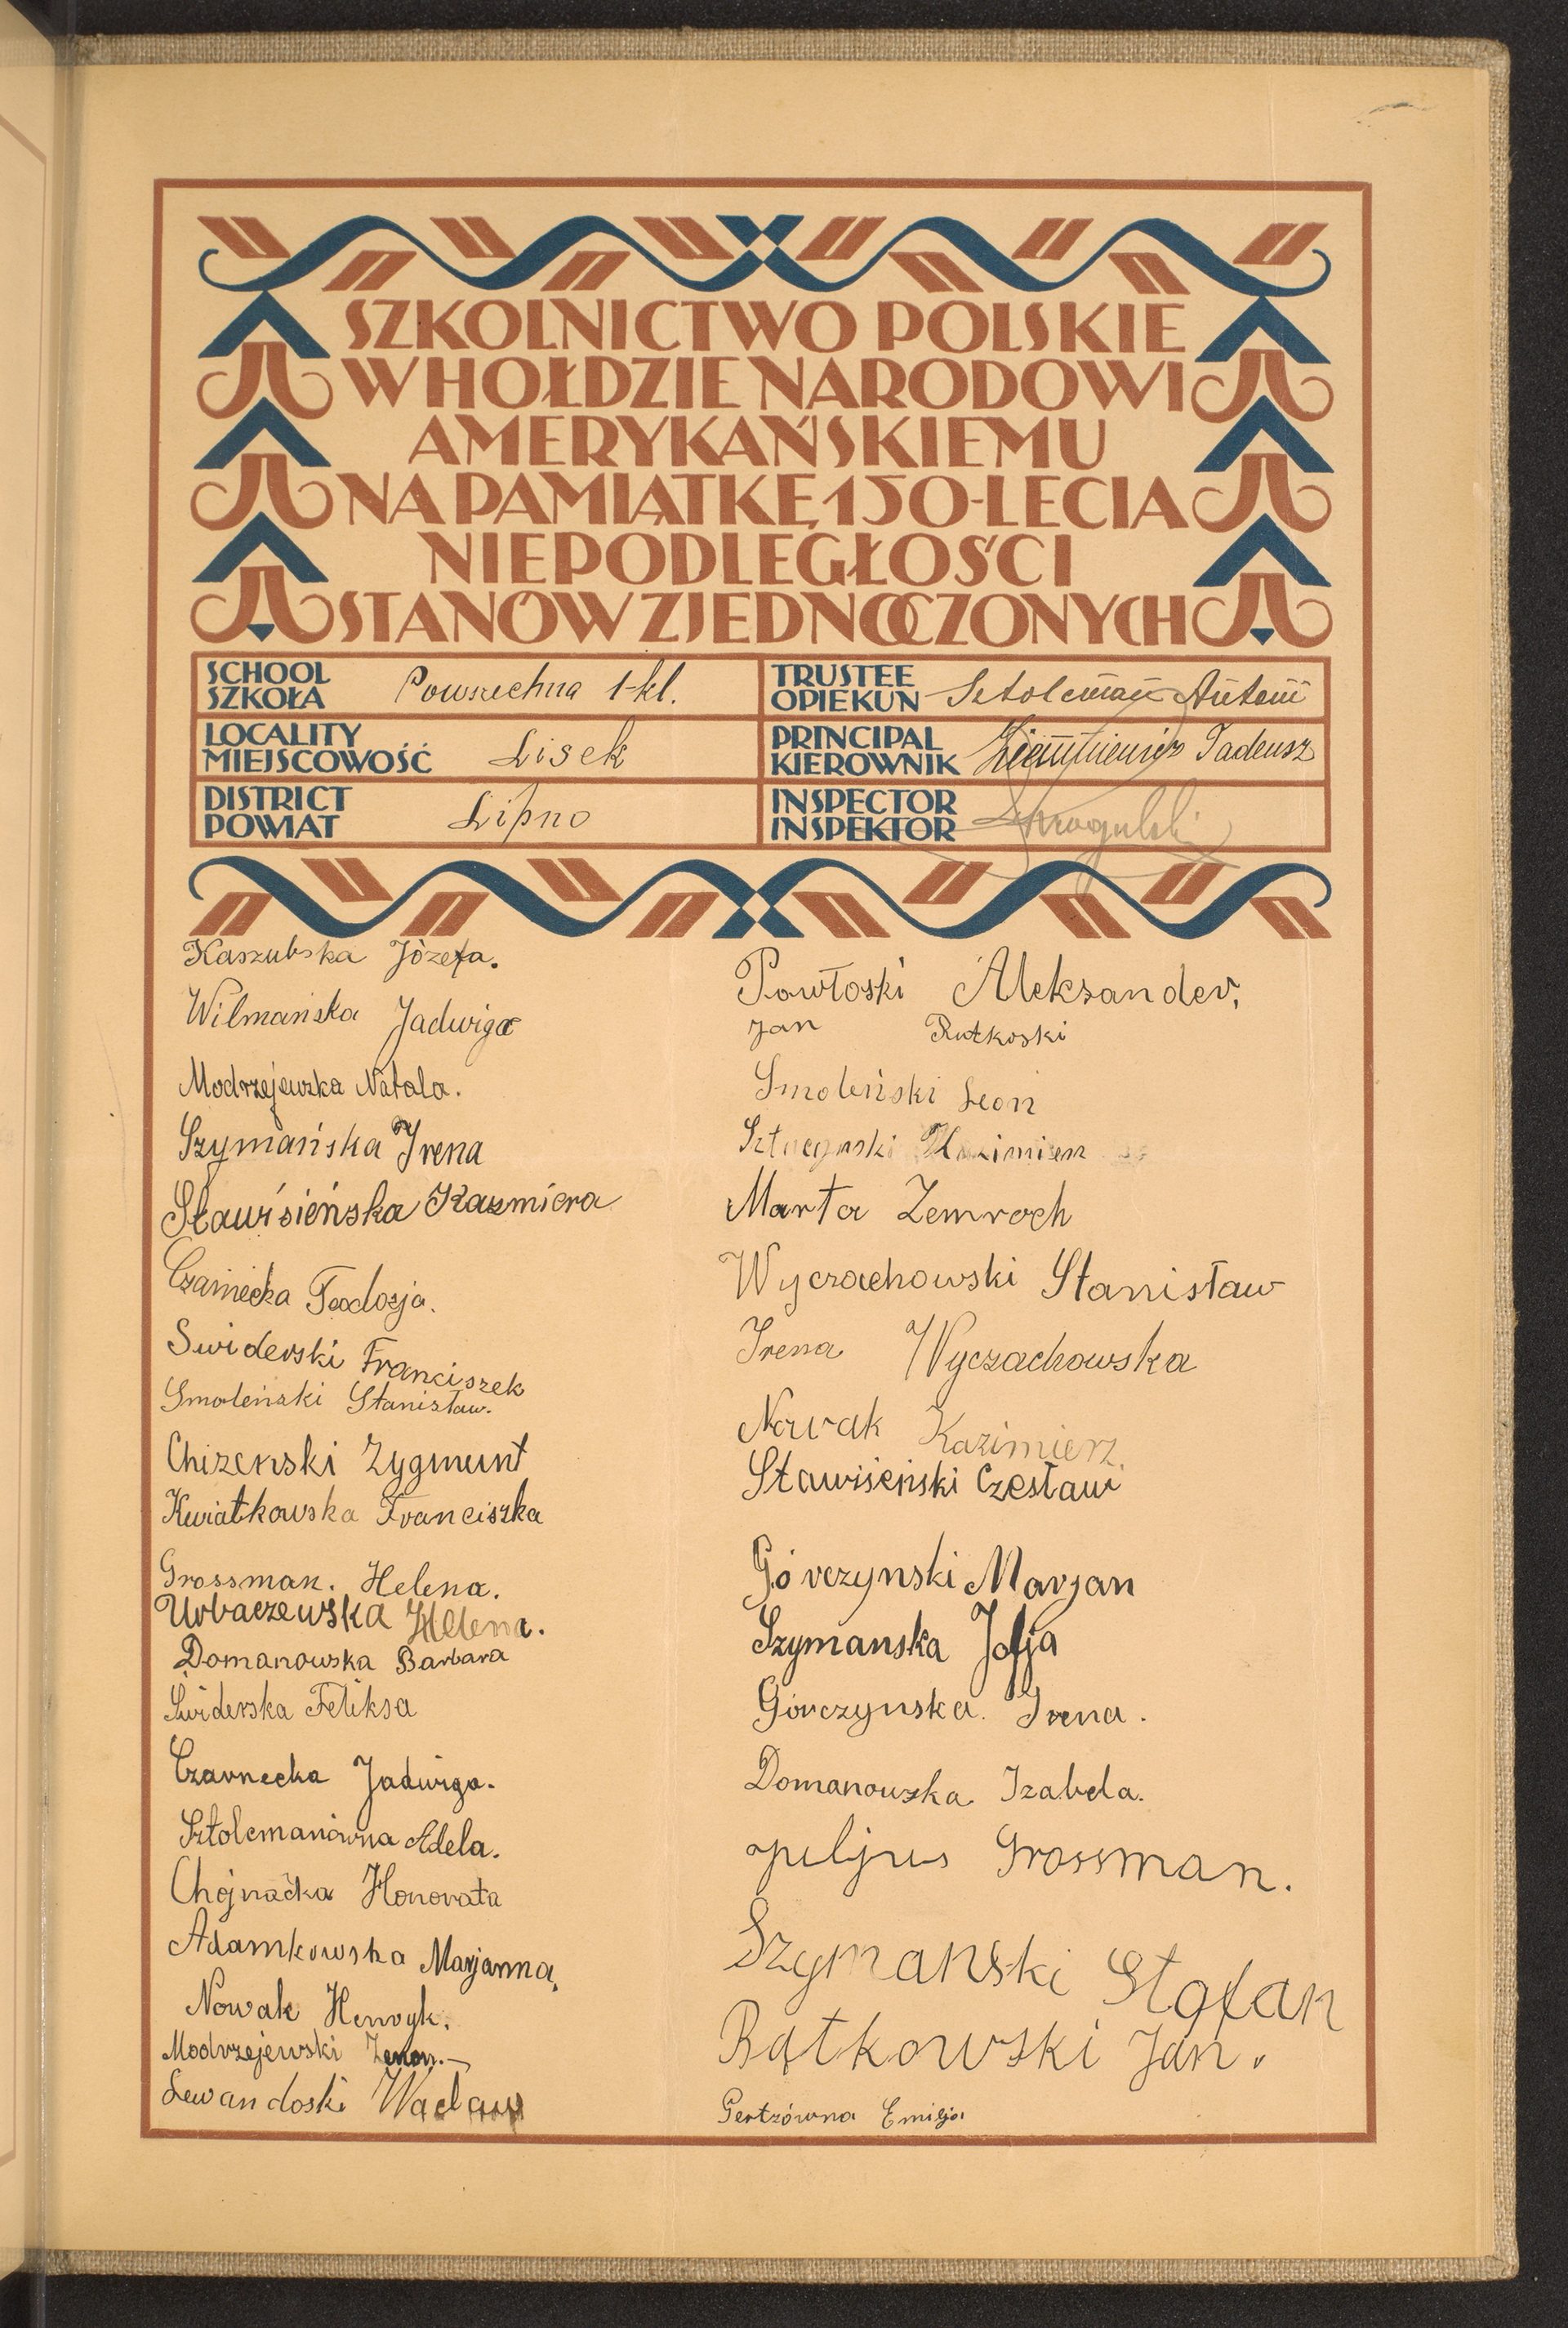 SZKOLNICTWO POLSKIE
W HOŁDZIE NARODOWI
AMERYKAŃSKIEMU
NA PAMIĄTKĘ 150-LECIA
NIEPODLEGŁOŚCI
STANÓW ZJEDNOCZONYCH
SCHOOL
SZKOŁA
Powszechna 1-kl.
TRUSTEE
OPIEKUN
Sztolcman Antoni
LOCALITY
MIEJSCOWOŚĆ
Lisek
PRINCIPAL
KIEROWNIK
Tadeusz
DISTRICT
POWIAT
Lipno
INSPECTOR
INSPEKTOR
Kaszubska Józefa.
Wilmańska Jadwiga
Modrzejewska Natala.
Szymańska Irena
Sławisieńska Kazmiera
Czarniecka Teodozja.
Swiderski Franciszek
Smoleński Stanisław.
Chizenski Zygmunt
Kwiatkowska Franciszka
Grossman. Helena.
Urbaczewska Helena.
Domanowska Barbara
Świderska Feliksa
Czarnecka Jadwiga.
Sztolcmanówna Adela.
Chojnacka Honorata
Adamkowska Marjanna,
Nowak Henryk.
Modrzejewski Zenon.
Lewandoski Wacław
Powłoski Aleksander,
Jan Rutkoski
Smoleński Leon
Kazimierz
Marta Zemroch
Wyczachowski Stanisław
Irena Wyczachowska
Nowak Kazimierz.
Stawiśeński Czesław
Górczynski Marjan
Szymanska Zofja
Górczynska. Irena.
Domanowska Izabela.
Juljus Grossman.
Szymanski Stefan
Rątkowski Jan.
Gertzówna Emilja